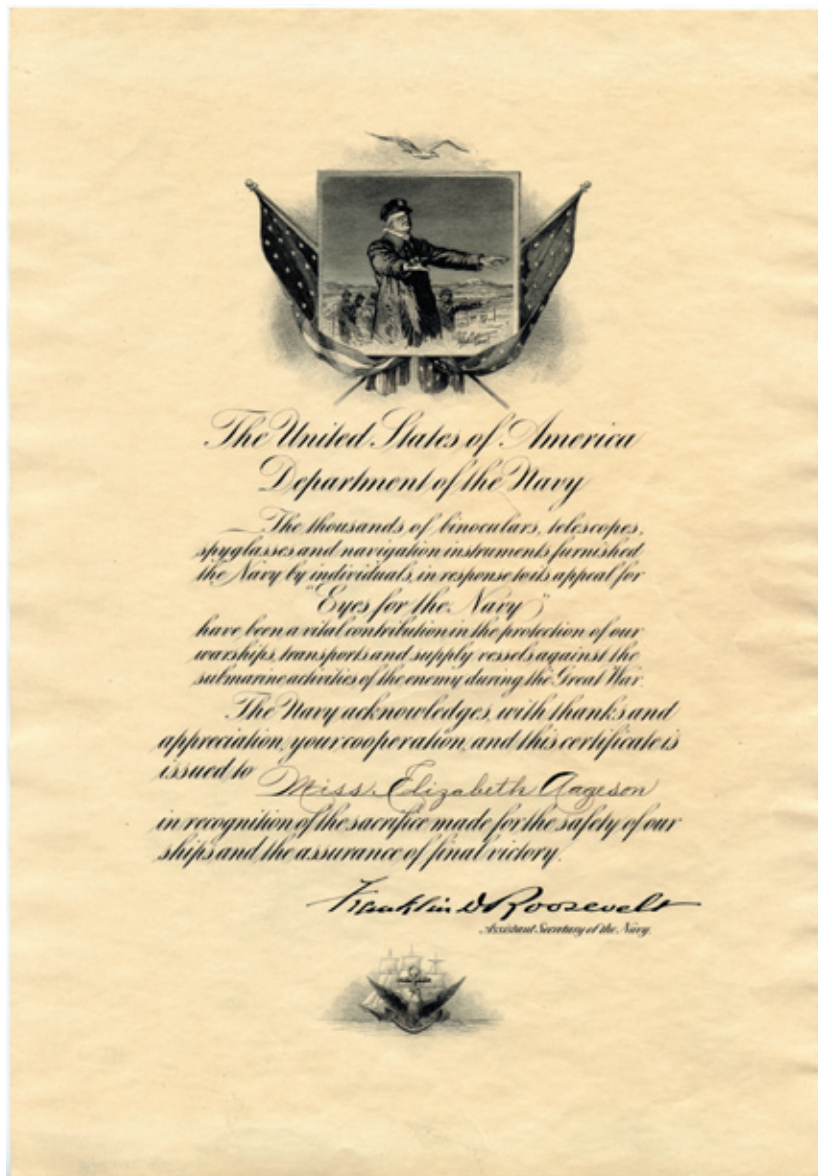 The United States of America
Department of the Navy
The thousands of binoculars, telescopes,
spyglasses and navigation instruments furnished
the Navy by individuals, in response to its appeal for
"Eyes for the Navy"
have been a vital contribution in the protection of our
warships, transports and supply vessels against the
submarine activities of the enemy during the Great War.
The Navy acknowledges, with thanks and
appreciation, your cooperation, and this certificate is
issued to Miss. Elizabeth Aageson
in recognition of the sacrifice made for the safety of our
ships and the assurance of final victory.
Franklin D Roosevelt
Assistant Secretary of the Navy.